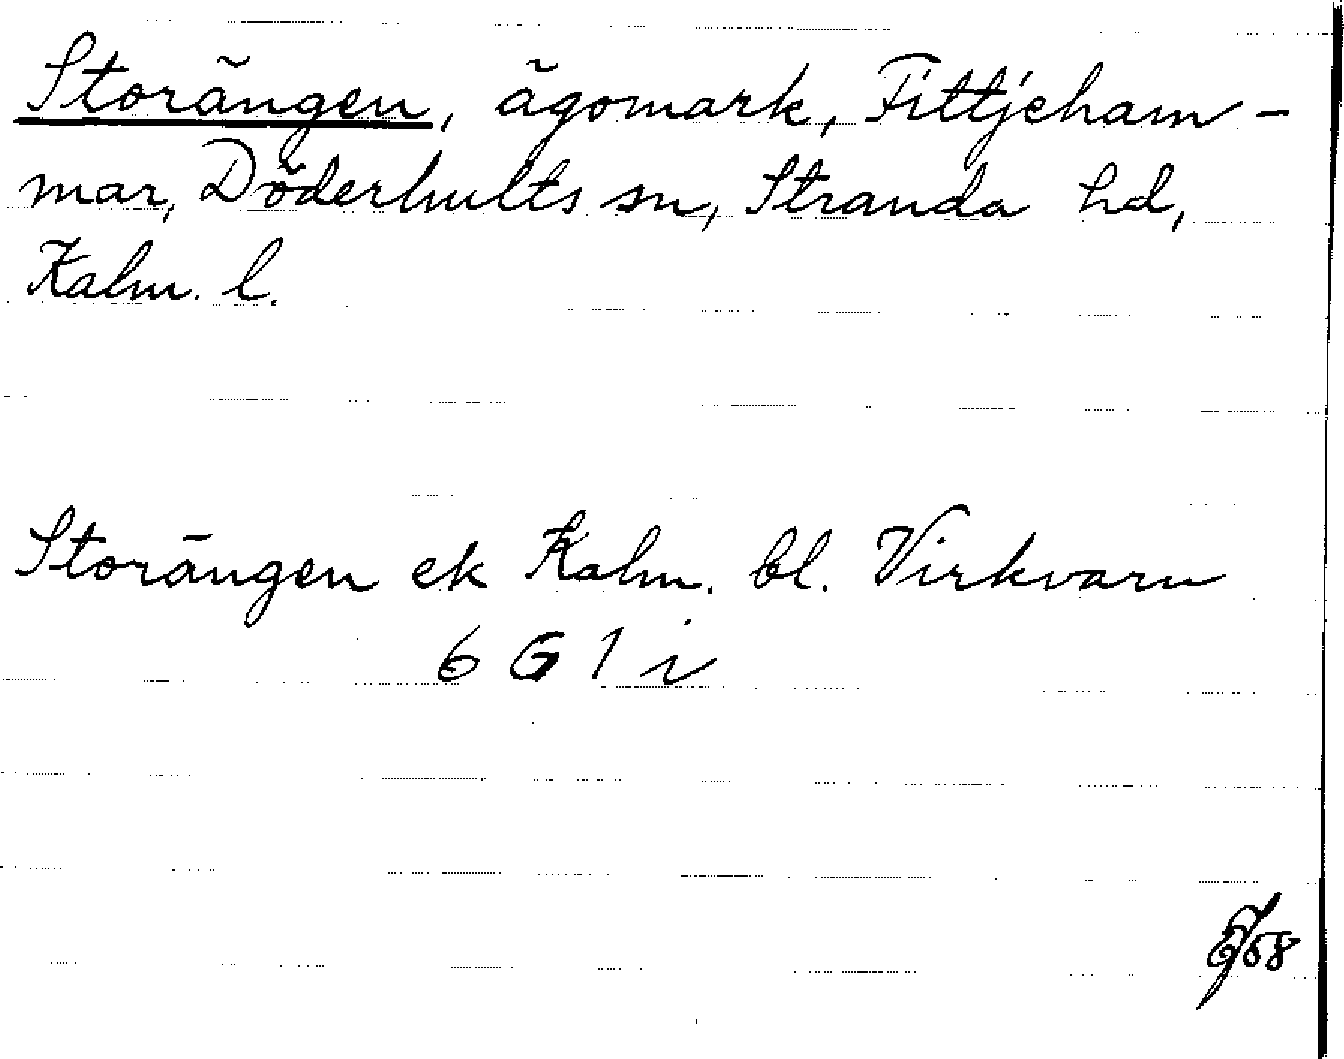 Storängen, ägomark, Fittjeham-
mar, Döderhults sn, Stranda hd,
Kalm. l.
Storängen ek Kalm. bl. Virkvarn
6 G 1 i
58